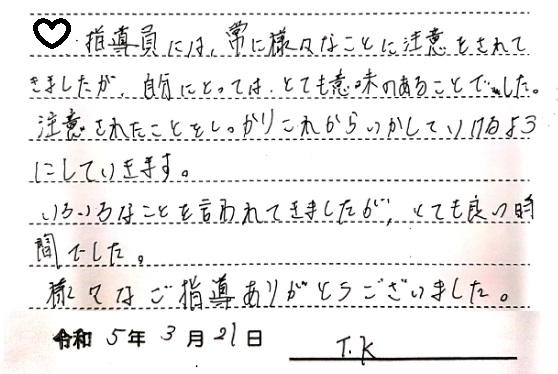 指導員には、常に様々なことに注意をされて
きましたが、自分にとっては、とても意味のあることでした。
注意されたことをしっかりこれからいかしていけるよう
にしていきます。
いろいろなことを言われてきましたが、とても良い時
間でした。
様々なご指導ありがとうございました。
令和 5年 3月 21日
T.K